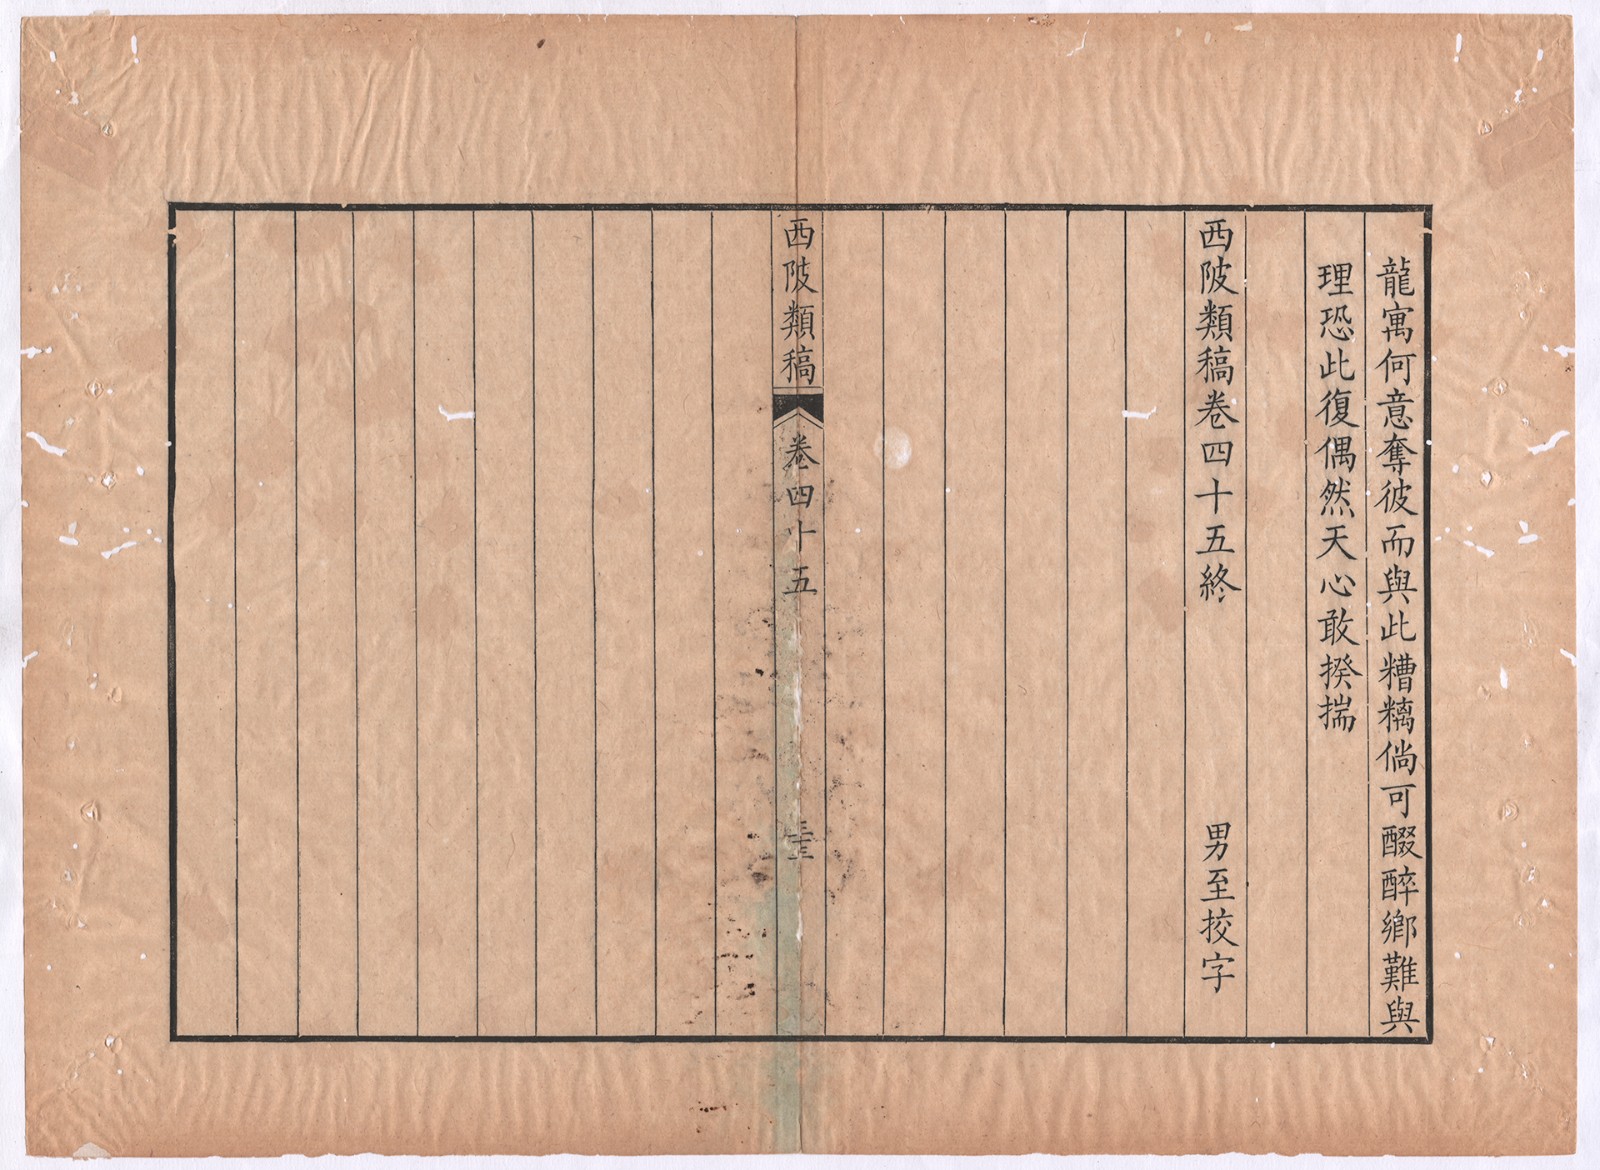 龍寓何意奪彼而與此糟糲倘可醊醉鄉難與
理恐此復偶然天心敢揆揣
西陂類稿卷四十五終
男至挍字
西陂類稿
卷四十五